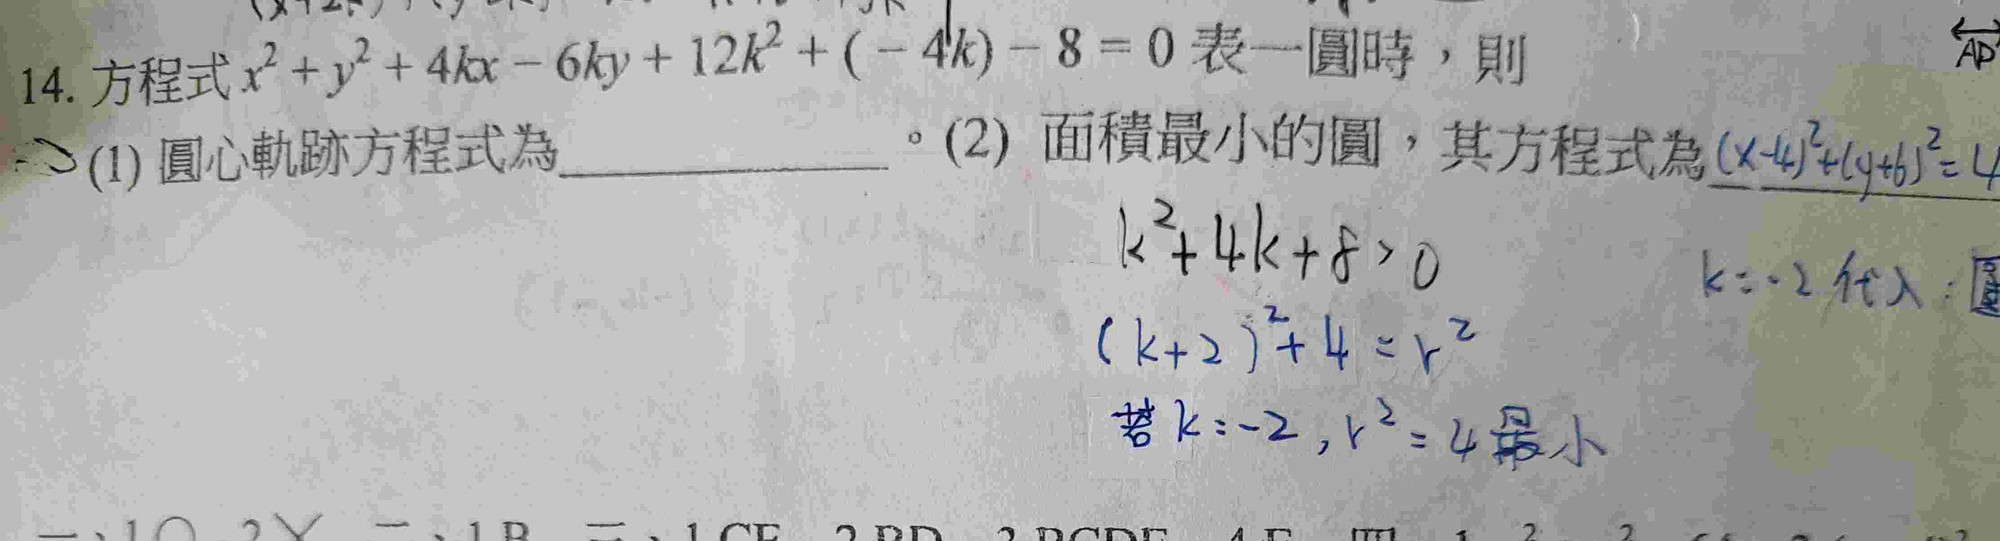 14. 方程式 x² + y² + 4kx − 6ky + 12k² + ( − 4k) − 8 = 0 表一圓時，則
AP
(1) 圓心軌跡方程式為____________。(2) 面積最小的圓，其方程式為 (x-4)²+(y+6)²=4
k²+4k+8>0
k=-2 代入：圓
(k+2)²+4=r²
若 k=-2, r²=4 最小